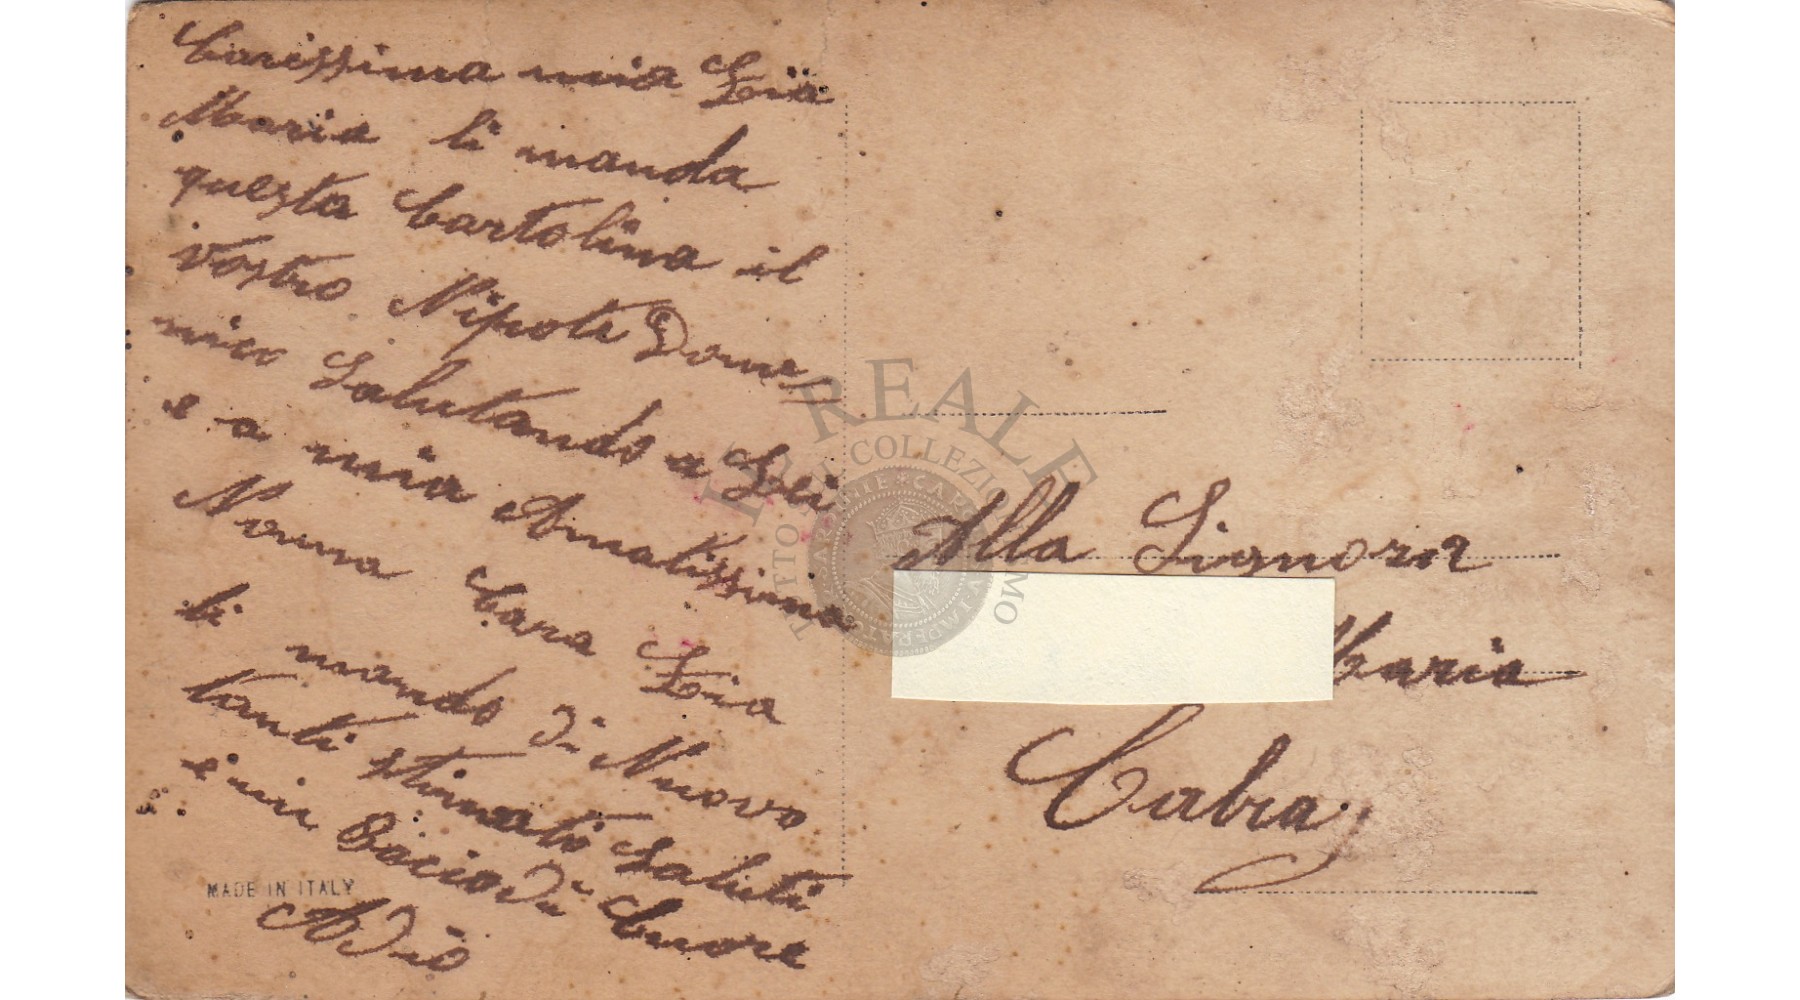 Carissima mia Zia
Maria li manda
questa Cartolina il
vostro Nipote Dome
nico Salutando a Lei
e a mia Amatissima
Nonna Cara Zia
li mando di Nuovo
tanti stimati Saluti
e un Bacio di Cuore
Adio
MADE IN ITALY
Alla Signora
Maria
Cabra
REALE
TUTTO COLLEZIONISMO